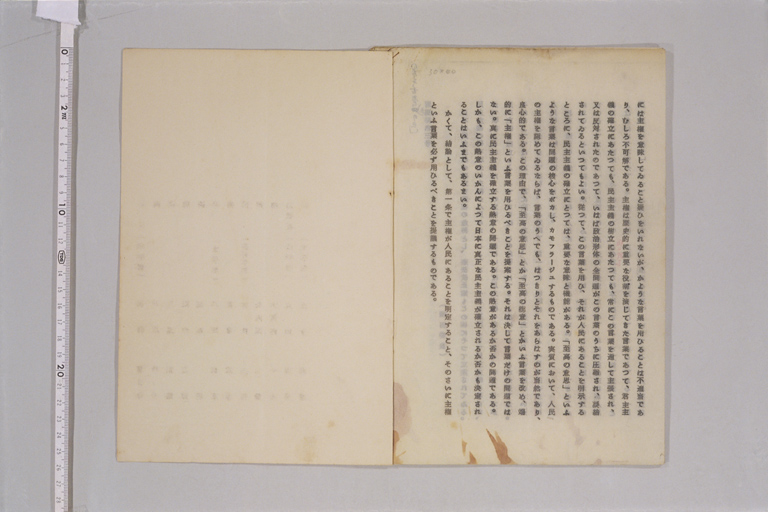 には主権を意味してゐること疑ひをいれないが、かような言葉を用ひることは不適当であ
り、むしろ不可解である。主権は歴史的に重要な役割を演じてきた言葉であつて、君主主
権の確立にあたつても、民主主義の樹立にあたつても、常にこの言葉を通して主張され、
又は反対されたのであつて、いはば政治形体の全問題がこの言葉のうちに圧縮され、
されてゐるといつてもよい。従つて、この言葉を用ひ、それが人民にあることを明示する
ところに、民主主義の確立にとつては、重要な意味と確信がある。「至高の意思」といふ
ような言葉は問題の核心をボカし、カモフラージユするものである。実質において、人民
の主権を認めてゐるならば、言葉のうへでも、はつきりとそれをあらはすのが当然であり、
良心的である。この理由で、「至高の意思」とか「至高の総意」とかいふ言葉を改め、
的に「主権」といふ言葉を用ひるべきことを提案する。それは決して言葉だけの問題では
ない。真に民主主義を確立する熱意の問題である。この熱意があるか否かの問題である。
しかも、この熱意のいかんによつて日本に真正な民主主義が確立されるか否かも決定され
ることはいふまでもあるまい。
かくて、結論として、第一条で主権が人民にあることを明定すること、そのさいに主権
といふ言葉を必ず用ひるべきことを提議するものである。